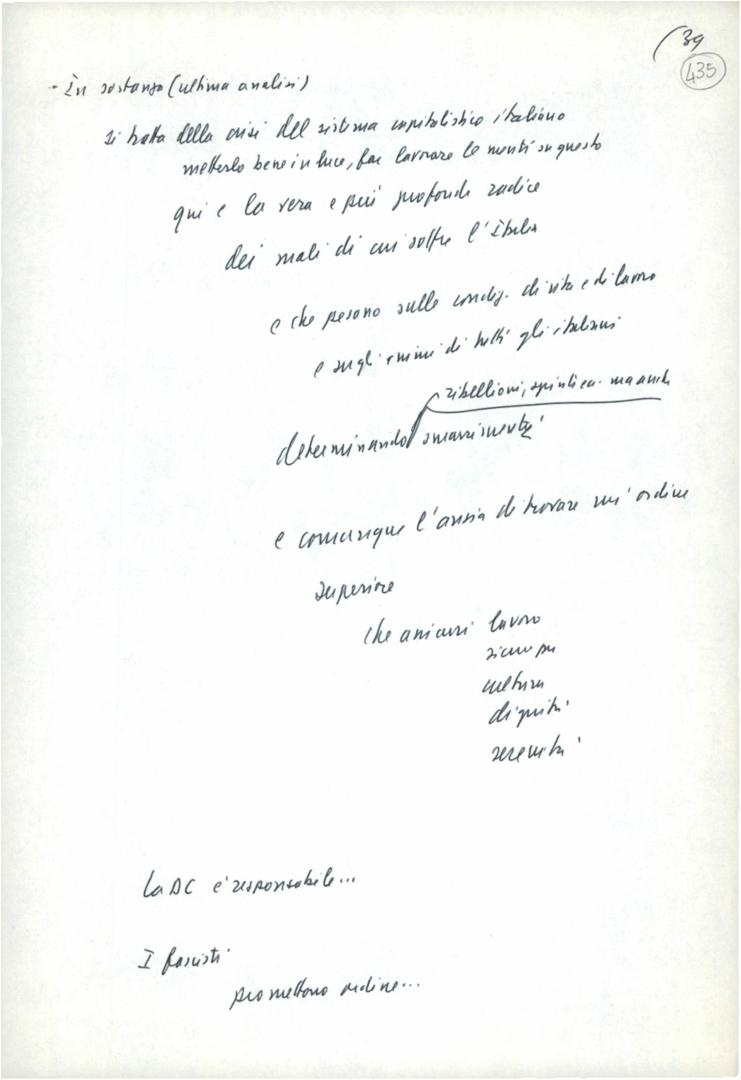 39
435
- In sostanza (ultima analisi)
si tratta della crisi del sistema capitalistico italiano
metterlo bene in luce, far lavorare le menti su questo
qui è la vera e più profonda radice
dei mali di cui soffre l'Italia
e che pesano sulle condiz. di vita e di lavoro
e sugli animi di tutti gli italiani
ribellioni, spinte ma anche
determinando smarrimento
e comunque l'ansia di trovare un'ordine
superiore
che assicuri lavoro
sicurezza
cultura
dignità
serenità
La DC è responsabile...
I fascisti
promettono ordine...